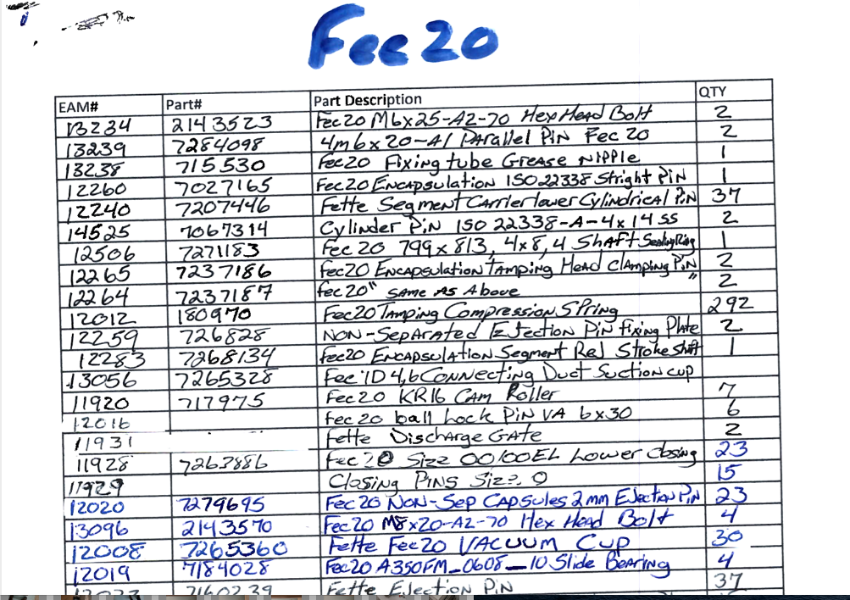 Fec 20
EAM# Part# Part Description QTY
13234 2143523 Fec20 M6x25-A2-70 Hex Head Bolt 2
13239 7284098 4m6x20-A1 Parallel Pin Fec 20 2
13238 715530 Fec20 Fixing tube Grease Nipple 1
12260 7027165 Fec20 Encapsulation ISO 22338 Stright Pin 1
12240 7207446 Fette Segment Carrier lower Cylindrical Pin 37
14525 7067314 Cylinder Pin ISO 22338-A-4x14 SS 2
12506 7271183 Fec 20 799x813, 4x8,4 Shaft Sealing Ring 1
12265 7237186 Fec20 Encapsulation Tamping Head Clamping Pin 2
12264 7237187 fec20 " same as Above " 2
12012 180970 Fec20 Tamping Compression Spring 292
12259 726828 Non-Separated Ejection Pin fixing Plate 2
12283 7268134 fec20 Encapsulation Segment Rej Stroke Shft 1
13056 7265328 Fec ID 4,6 Connecting Duct Suction cup
11920 717975 Fec20 KR16 Cam Roller 7
12016 fec 20 ball Lock Pin VA 6x30 6
11931 Fette Discharge Gate 2
11928 7263886 Fec 20 Size 00/00EL Lower Closing 23
11929 Closing Pins Size: 0 15
12020 7279695 Fec20 Non-Sep Capsules 2mm Ejection Pin 23
13096 2143570 Fec20 M8x20-A2-70 Hex Head Bolt 4
12008 7265360 Fette Fec20 Vacuum Cup 30
12019 7184028 Fec20 A350FM_0608_10 Slide Bearing 4
7160239 Fette Ejection Pin 37